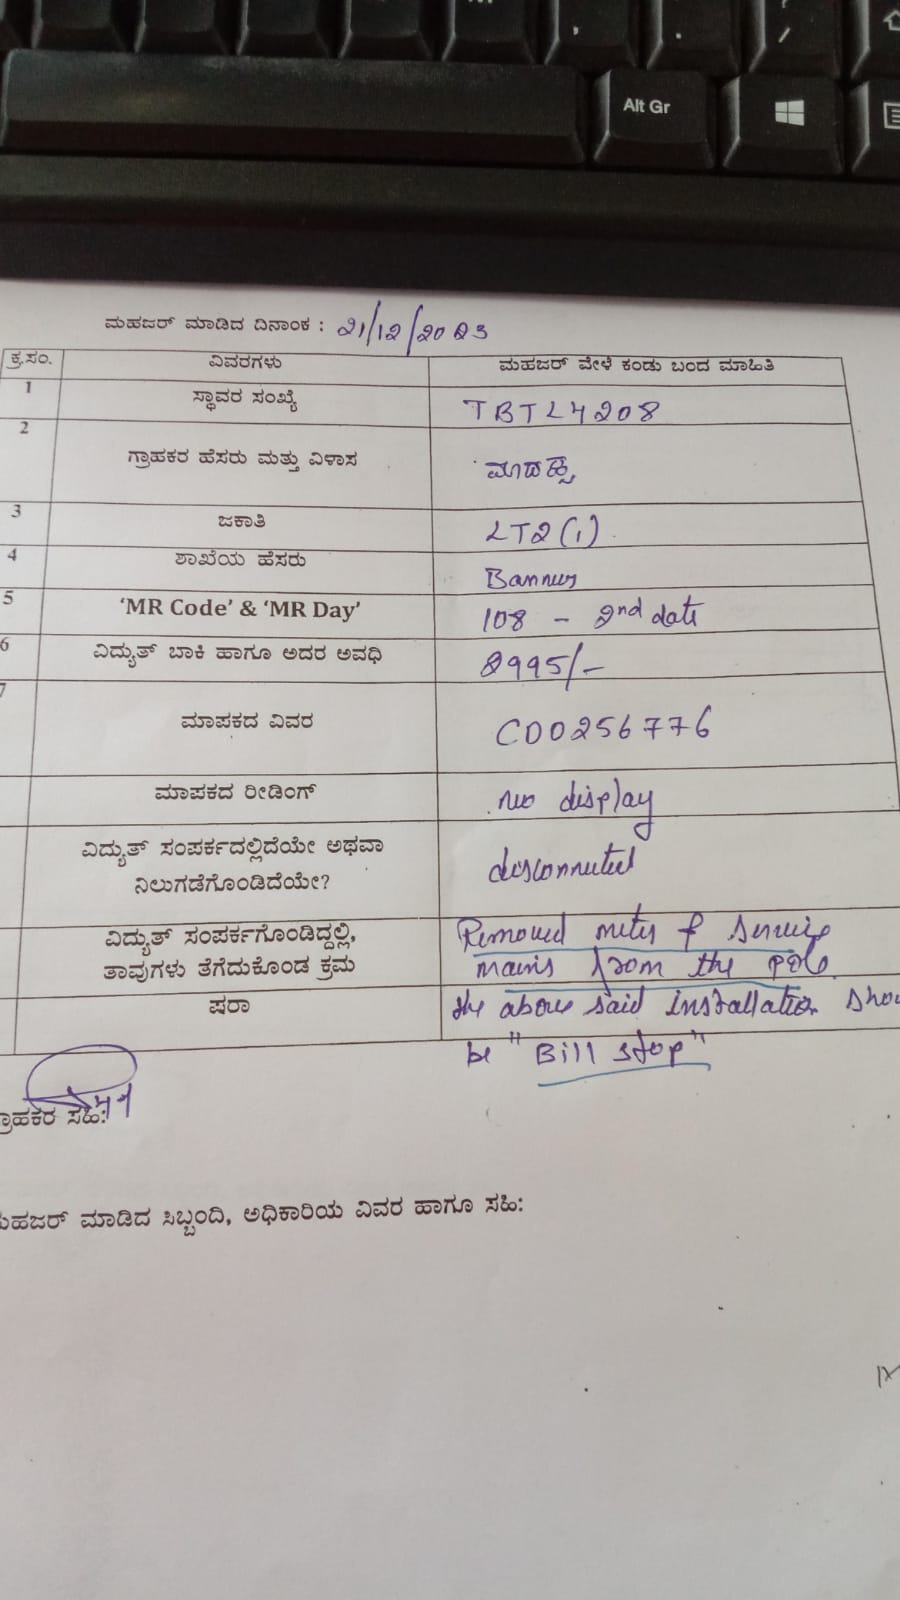 Alt Gr
ಮಹಜರ್ ಮಾಡಿದ ದಿನಾಂಕ : 21/12/2023
ಕ್ರ.ಸಂ. ವಿವರಗಳು ಮಹಜರ್ ವೇಳೆ ಕಂಡು ಬಂದ ಮಾಹಿತಿ
1 ಸ್ಥಾವರ ಸಂಖ್ಯೆ TBTL4208
2 ಗ್ರಾಹಕರ ಹೆಸರು ಮತ್ತು ವಿಳಾಸ ಮಾದಪ್ಪ
3 ಜಕಾತಿ LT2(1)
4 ಶಾಖೆಯ ಹೆಸರು Bannur
5 ‘MR Code’ & ‘MR Day’ 108 - 2nd date
6 ವಿದ್ಯುತ್ ಬಾಕಿ ಹಾಗೂ ಅದರ ಅವಧಿ 8995/-
7 ಮಾಪಕದ ವಿವರ CD0256776
ಮಾಪಕದ ರೀಡಿಂಗ್ no display
ವಿದ್ಯುತ್ ಸಂಪರ್ಕದಲ್ಲಿದೆಯೇ ಅಥವಾ
ನಿಲುಗಡೆಗೊಂಡಿದೆಯೇ? disconnected
ವಿದ್ಯುತ್ ಸಂಪರ್ಕಗೊಂಡಿದ್ದಲ್ಲಿ, Removed meter & service
ತಾವುಗಳು ತೆಗೆದುಕೊಂಡ ಕ್ರಮ mains from the pole
ಷರಾ the above said installation shou
be "Bill stop"
ಗ್ರಾಹಕರ ಸಹಿ:
ಮಹಜರ್ ಮಾಡಿದ ಸಿಬ್ಬಂದಿ, ಅಧಿಕಾರಿಯ ವಿವರ ಹಾಗೂ ಸಹಿ: